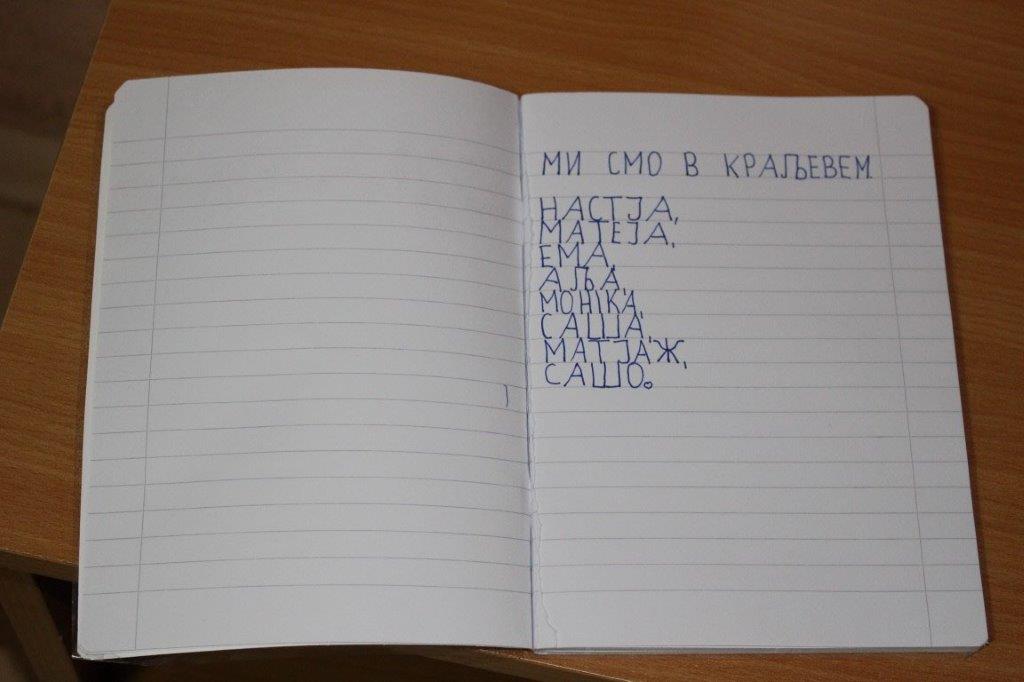 МИ СМО В КРАЉЕВЕМ.
НАСТЈА,
МАТЕЈА,
ЕМА,
АЉА,
МОНІКА,
САША,
МАТЈАЖ,
САШО.